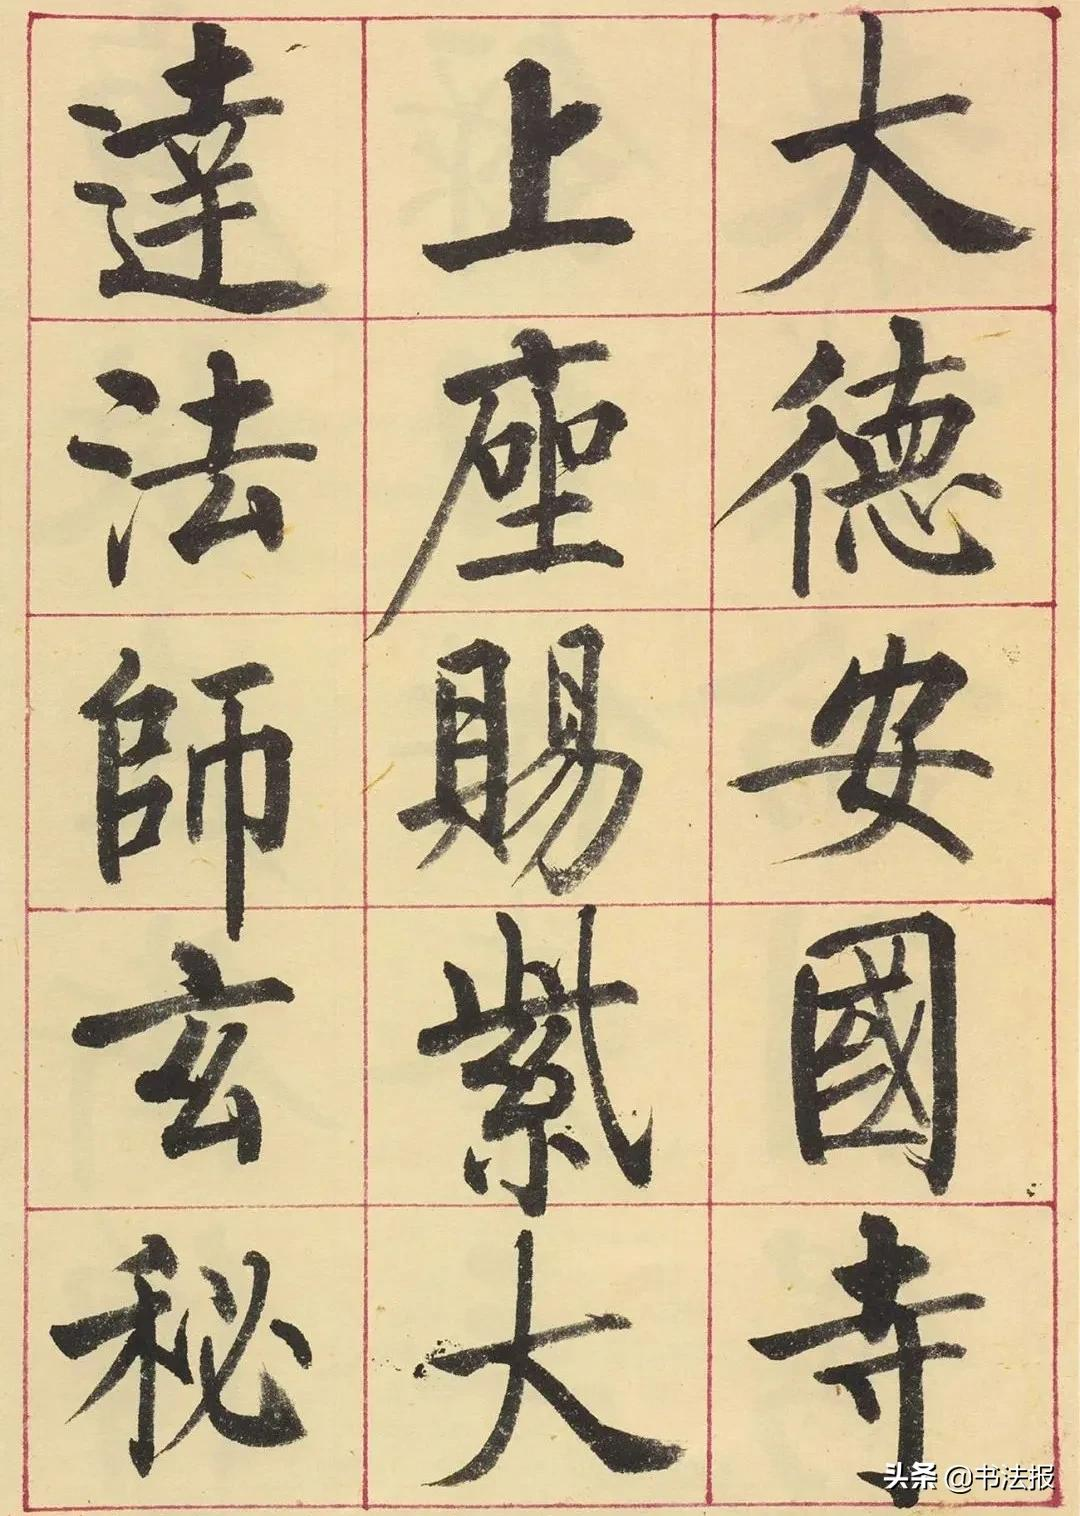 大德安國寺
上座賜紫大
達法師玄秘
头条 @书法报